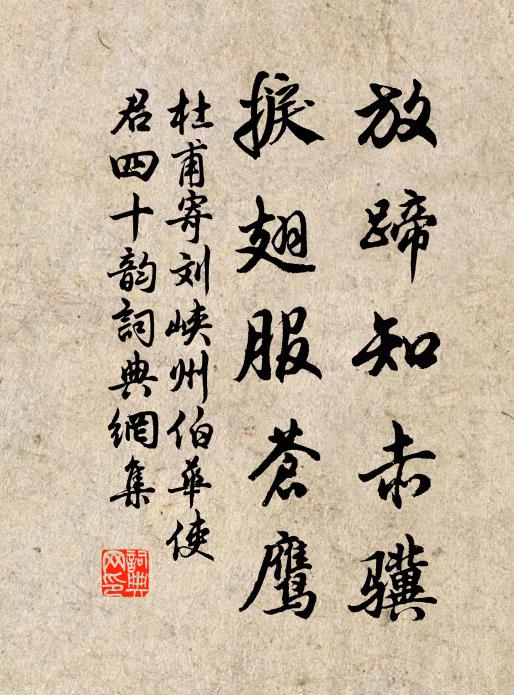 放蹄知赤骥
捩翅服苍鹰
杜甫寄刘峡州伯华使
君四十韵词典网集
詞典
网印